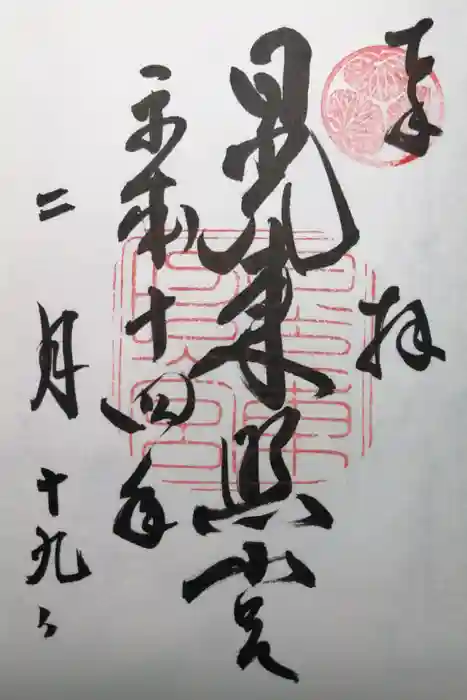 奉拝
日光東照宮
平成十四年
二月十九日